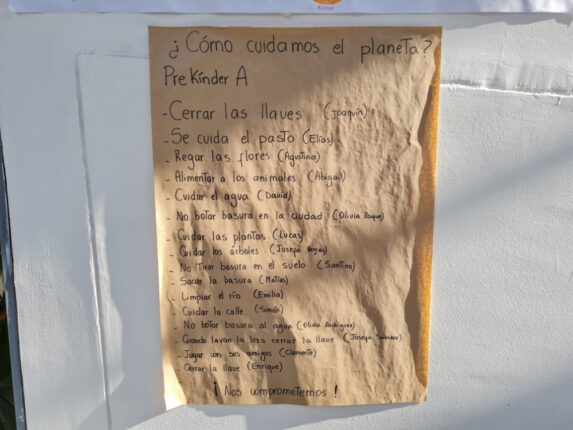 ¿Cómo cuidamos el planeta?
Pre Kínder A
- Cerrar las llaves (Joaquín)
- Se cuida el pasto (Elías)
- Regar las flores (Agustina)
- Alimentar a los animales (Abigail)
- Cuidar el agua (David)
- No botar basura en la ciudad (Olivia Roque)
- Cuidar las plantas (Lucas)
- Cuidar los árboles (Josefa Rojas)
- No Tirar basura en el suelo (Santino)
- Sacar la basura (Matías)
- Limpiar el río (Emilia)
- Cuidar la calle (Simón)
- No botar basura al agua (Olivia Rodríguez)
- Cuando lavan la loza cerrar la llave (Josefa Salazar)
- Jugar con sus amigos (Clemente)
- Cerrar la llave (Enrique)
¡Nos comprometemos!